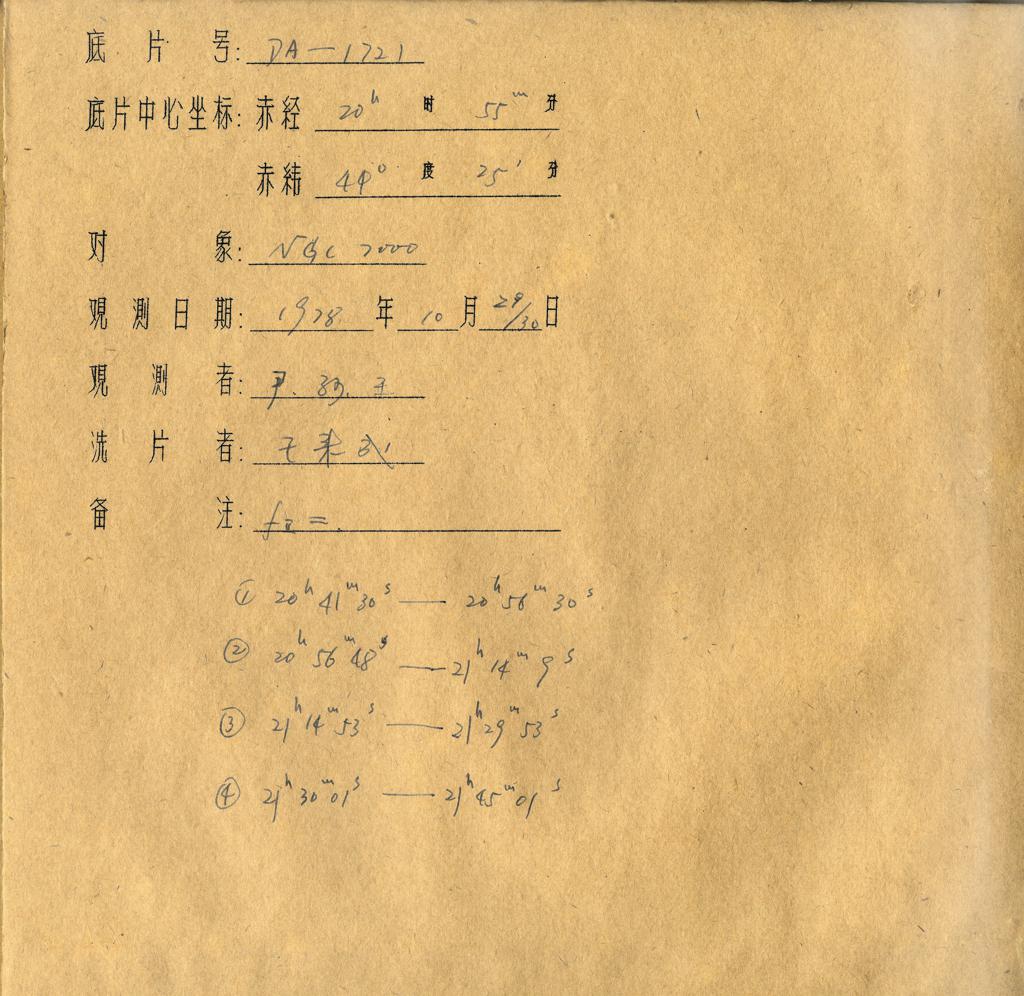 底片号: DA—1721
底片中心坐标: 赤经 20ʰ 时 55ᵐ 分
赤纬 44° 度 25′ 分
对象: NGC 7000
观测日期: 1978 年 10 月 29/30 日
观测者: 尹. 王
洗片者: 王来
备注: =.
① 20ʰ41ᵐ30ˢ — 20ʰ56ᵐ30ˢ
② 20ʰ56ᵐ48ˢ — 21ʰ14ᵐ9ˢ
③ 21ʰ14ᵐ53ˢ — 21ʰ29ᵐ53ˢ
④ 21ʰ30ᵐ01ˢ — 21ʰ45ᵐ01ˢ